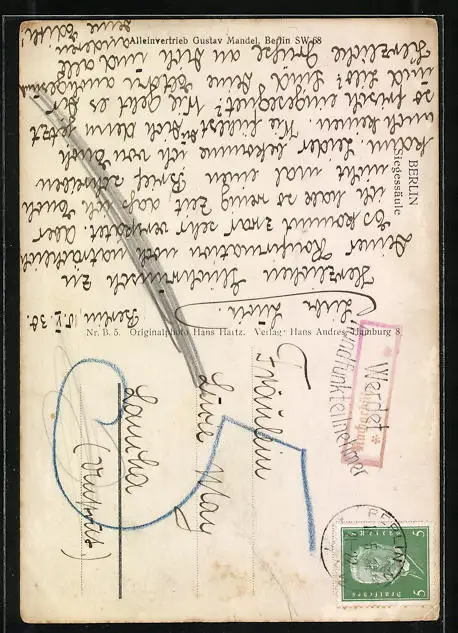 Alleinvertrieb Gustav Mandel, Berlin SW 68
BERLIN
Siegessäule
Berlin 10. V. 30.
Liebe Livia.
Herzlichen Glückwunsch zu
Deiner Konfirmation nachträglich
Es kommt zwar sehr verspätet. Aber
ich habe so wenig Zeit, daß ich Euch
nicht einmal einen Brief schreiben
kann. Leider bekomme ich von Euch
auch keinen. Wie fühlst Du Dich denn jetzt
so frisch eingesegnet? Wie geht es Dir
und Lilo? Sind Deine Eltern
Herzliche Grüße an Dich und alle
anderen
Nr. B. 5. Originalphoto Hans Hartz. Verlag: Hans Andres, Hamburg 8
Fräulein
May
Laucha
(Unstrut)
Werdet
Rundfunkteilnehmer
BERLIN
Deutsches Reich
5 5